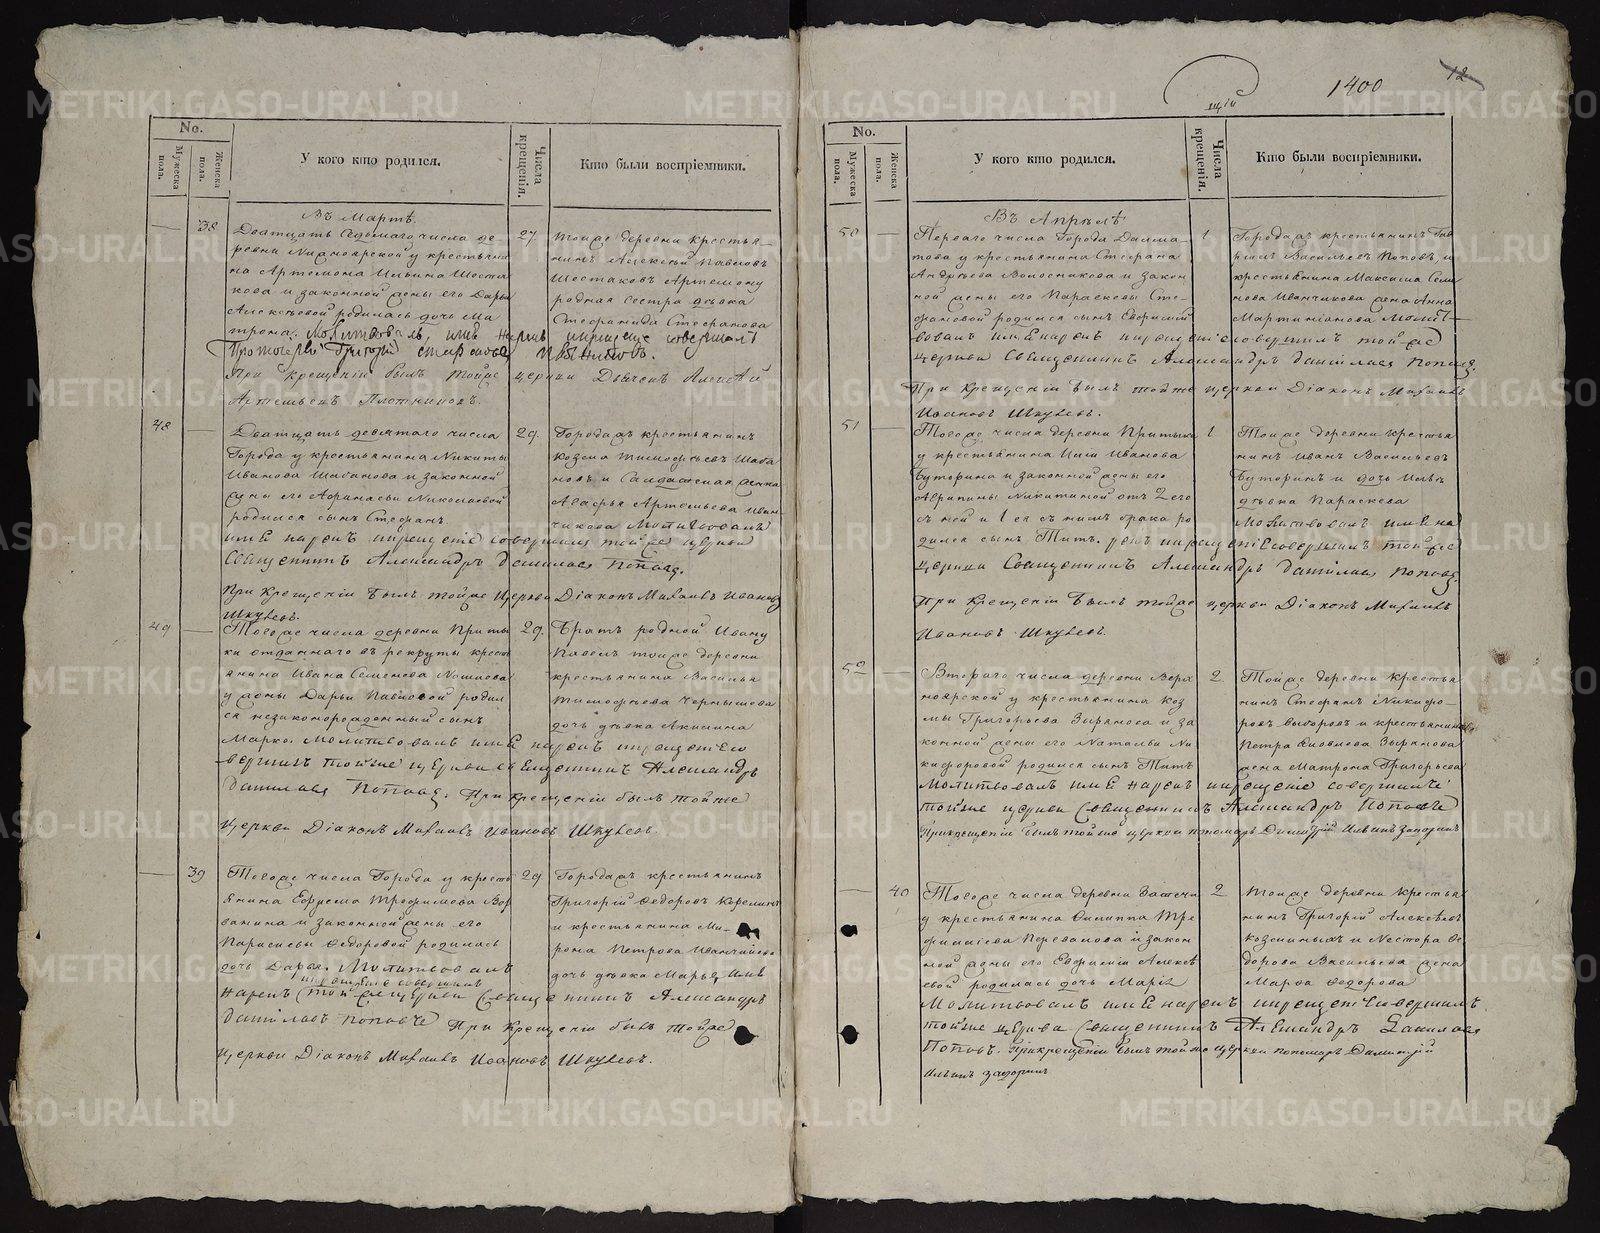 1400
12
щій
No.
Мужеска пола.
Женска пола.
У кого кто родился.
Числа крещенія.
Кто были воспріемники.
Въ Мартѣ.
38
Дватцать седьмаго числа де-
ревни Нижноярской у крестьяни
на Артемона Ильина Шеста
кова и законной жены его Дарьи
Алексѣевой родилась дочь Ма
трона. Молитвовалъ, имя нарекъ и крещеніе совершалъ
Протоіерей Григорій Стефановъ Плотниковъ.
При крещеніи былъ тойже церкви Дьячекъ Алексѣй
Артемьевъ Плотниковъ.
27
тоиже деревни крестья-
нинъ Алексѣй Павловъ
Шестаковъ Артемону
родная сестра дѣвка
Стефанида Стефанова
48
Дватцать девятаго числа
Города у крестьянина Никиты
Иванова Шабанова и законной
жены его Афанасьи Николаевой
родился сынъ Стефанъ.
имя нарекъ и крещеніе совершилъ тойже церкви
Священникъ Александръ Даниловъ Поповъ.
При крещеніи былъ тойже церкви Діаконъ Михаилъ Ивановъ
Шкулевъ.
29.
Городажъ крестьянинъ
Козма Тимофѣевъ Шаба
новъ и Салдатская женка
Агафья Артемьева Иван-
чикова Молитвовалъ
49
Тогоже числа деревни Приты
ки отданнаго въ рекруты кресть
янина Ивана Семенова
у жены Дарьи Павловой родил
ся незаконорожденный сынъ
Марко. Молитвовалъ имя нарекъ и крещеніе со
вершилъ тойже церкви священникъ Александръ
Даниловъ Поповъ. При крещеніи былъ тойже
церкви Діаконъ Михаилъ Ивановъ Шкулевъ.
29.
Братъ родной Ивану
Павелъ тоиже деревни
крестьянина Василья
Тимофѣева Чернышева
дочь дѣвка Акилина
39
Тогоже числа Города у кресть
янина Ефрема Трофимова
и законной жены его
Парасковьи Федоровой родилась
дочь Дарья. Молитвовалъ
и крещеніе совершилъ
нарекъ тойже церкви Священникъ Александръ
Даниловъ Поповъ При крещеніи былъ тойже
церкви Діаконъ Михаилъ Ивановъ Шкулевъ.
29
Городажъ крестьянинъ
Григорій Федоровъ Корелинъ
и крестьянина Ми-
рона Петрова Иванчикова
дочь дѣвка Марья, имя
No.
Мужеска пола.
Женска пола.
У кого кто родился.
Числа крещенія.
Кто были воспріемники.
Въ Апрелѣ
50
Перваго числа Города Далма-
това у крестьянина Стефана
Андреева Волосникова и закон
ной жены его Параскевы Сте-
фановой родился сынъ Евфимій
вовалъ имя нарекъ и крещеніе совершилъ тойже
церкви Священникъ Александръ Даниловъ Поповъ.
При крещеніи былъ тойже церкви Діаконъ Михаилъ
Ивановъ Шкулевъ.
1
Городажъ крестьянинъ Гав
рилъ Васильевъ Поповъ, и
крестьянина Максима Семе
нова Иванчикова жена Анна
Мартиніанова Молит-
51
Тогоже числа деревни Притыки
у крестьянина Ильи Иванова
Буторина и законной жены его
Агрипины Никитиной отъ 2 его
съ ней и 1 ея съ нимъ брака ро
дился сынъ Титъ. рекъ и крещеніе совершилъ тойже
церкви Священникъ Александръ Даниловъ Поповъ.
При крещеніи былъ тойже церкви Діаконъ Михаилъ
Ивановъ Шкулевъ.
1
Тоиже деревни крестья
нинъ Иванъ Васильевъ
Буторинъ и дочь Ильи
дѣвка Параскева
Молитвовалъ имя на
52
Втораго числа деревни Верх
ноярской у крестьянина Коз
мы Григорьева Зырянова и за
конной жены его Натальи Ни
кифоровой родился сынъ Титъ
Молитвовалъ имя нарекъ и крещеніе совершилъ
тойже церкви Священникъ Александръ Поповъ
При крещеніи былъ тойже церкви пономарь Димитрій Ильинъ Заворинъ
2
Тойже деревни крестья
нинъ Стефанъ Никифо-
ровъ Выборовъ и крестьянина
Петра Яковлева Зырянова
жена Матрона Григорьева
40
Тогоже числа деревни Затечи
у крестьянина Филиппа Тро
фимова Перевалова и закон
ной жены его Евфиміи Алексѣ
евой родилась дочь Марія
Молитвовалъ имя нарекъ и крещеніе совершилъ
тойже церкви Священникъ Александръ Даниловъ
Поповъ. При крещеніи былъ тойже церкви пономарь Димитрій
Ильинъ Заворинъ
2
Тоиже деревни крестья
нинъ Григорій Алексѣевъ
Козминыхъ и Нестора Фе
дорова Васильева жена
Марфа Федорова
METRIKI.GASO-URAL.RU